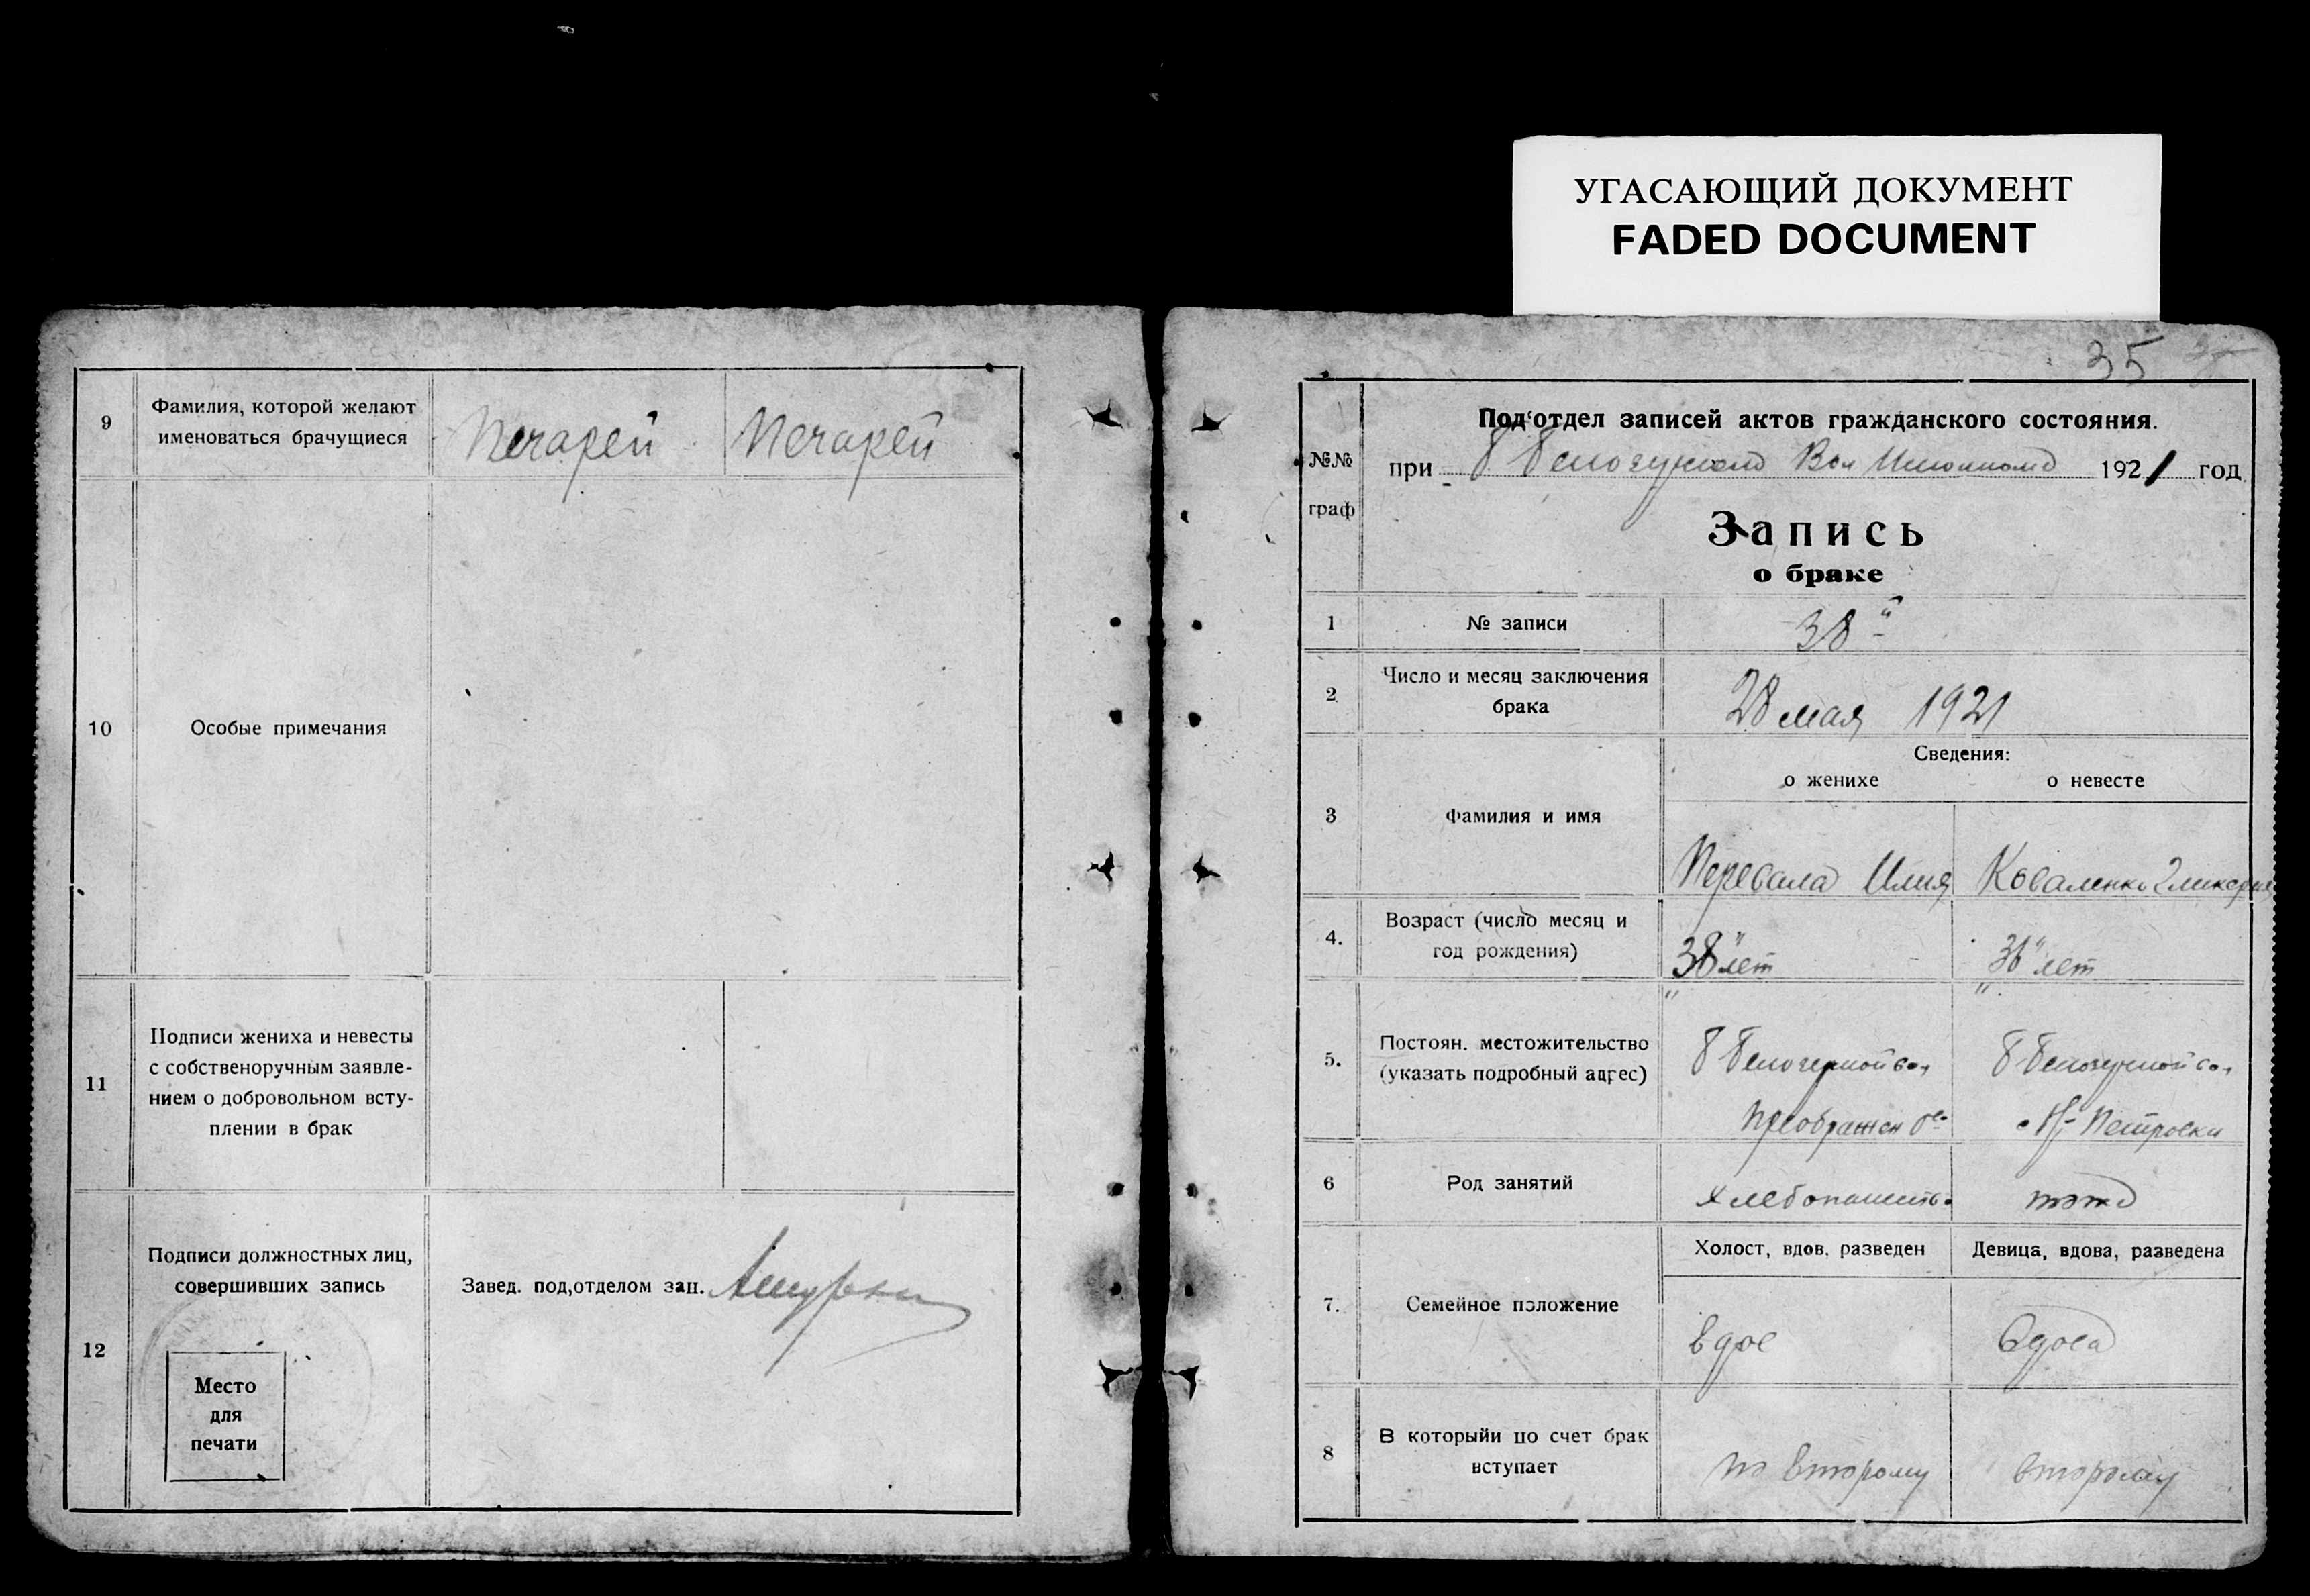 УГАСАЮЩИЙ ДОКУМЕНТ
FADED DOCUMENT
9
Фамилия, которой желают
именоваться брачущиеся
Печарей
Печарей
10
Особые примечания
11
Подписи жениха и невесты
с собственоручным заявле-
нием о добровольном всту-
плении в брак
12
Подписи должностных лиц,
совершивших запись
Завед. под,отделом зап.
Место
для
печати
35
№№
граф
Под‘отдел записей актов гражданского состояния.
при Вол 1921 год
Запись
о браке
1
№ записи
38"
2
Число и месяц заключения
брака
28 мая 1921
3
Фамилия и имя
Сведения:
о женихе
о невесте
Перевала Илия
Коваленко Гликерия
4.
Возраст (число месяц и
год рождения)
38" лет
36" лет
5.
Постоян. местожительство
(указать подробный адрес)
Преображен
Н- Петровки
6
Род занятий
хлебопашеств
тожд
7.
Семейное положение
Холост, вдов, разведен
Девица, вдова, разведена
вдов
вдова
8
В которыйи по счет брак
вступает
по второму
второму